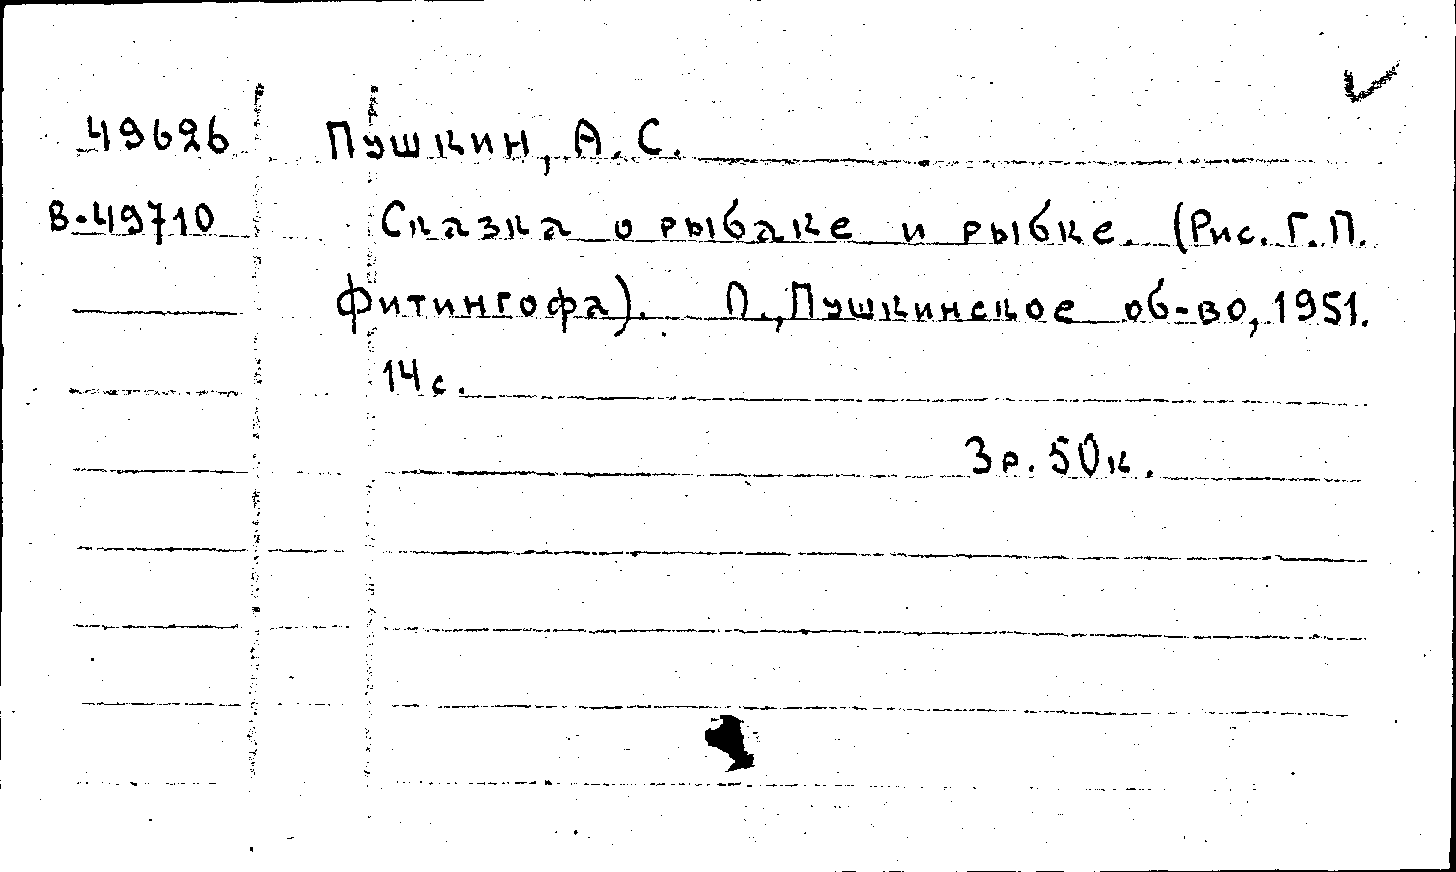 49626 Пушкин, А. С.
В-49710 Сказка о рыбаке и рыбке. (Рис. Г. П.
Фитингофа). Л., Пушкинское об-во, 1951.
14 с.
3 р. 50 к.